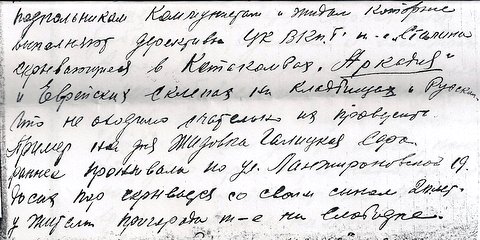 подпольникам коммунистам и жидам которые
выполняют директивы ЦК ВКП.б и т-е „Сталина
скрывающиеся в Катакомбах. „Аркадия"
и Еврейских склепах на кладбищах и Русских.
Что не мешало тщательно их проверить.
Пример на дня Жидовка Галицкая Сара.
ранее проживала по ул. Ланжероновской 19.
до сих пор скрывается со своим сыном 20 лет.
у жителя пригорода т-е на слободке.